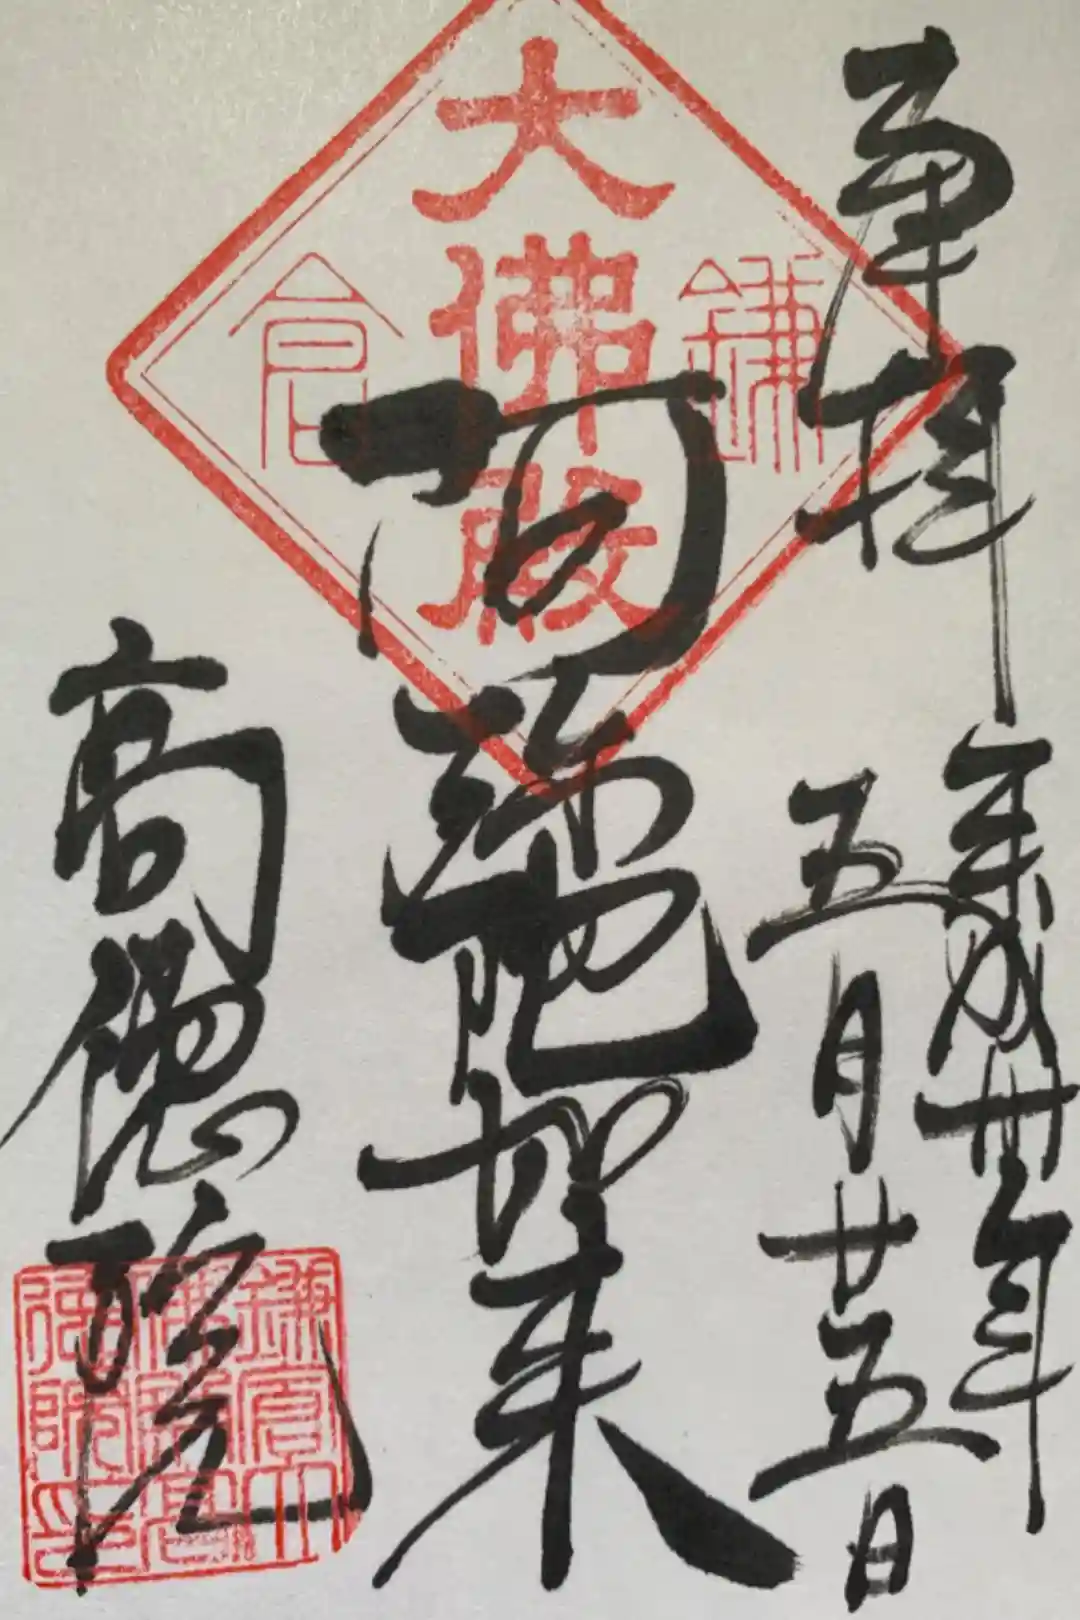 奉拝
平成卅年
五月廿五日
大佛殿
鎌倉
阿弥陀如来
高徳院
鎌倉大
佛殿高
徳院印